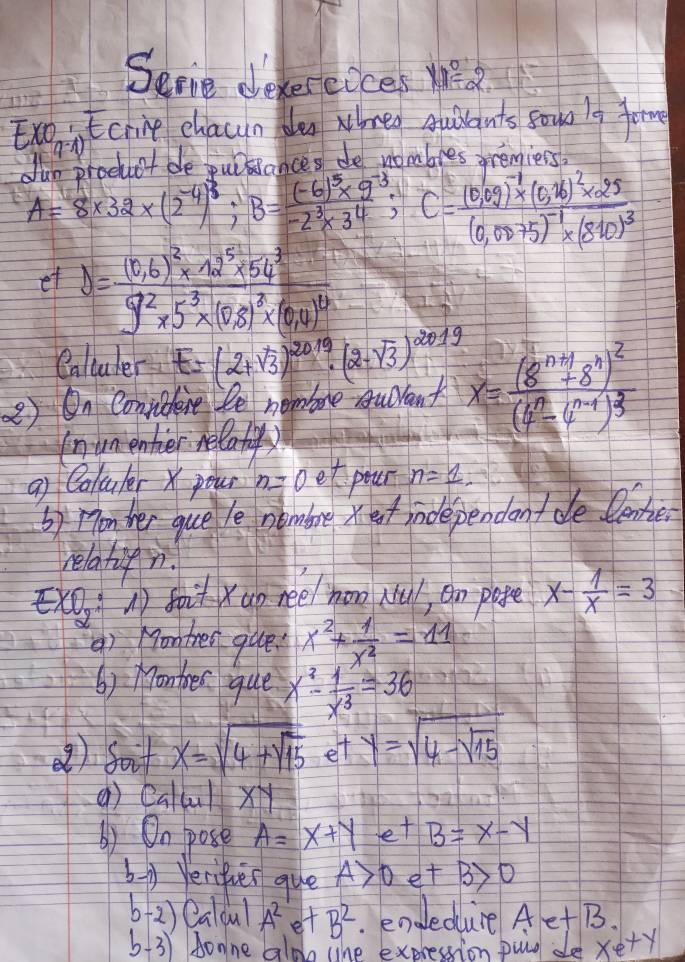 Serie d'exercices N°=2
EXO1: 1) Ecrire chacun des Nbres suivants sous la forme
d'un produit de puissances de nombres prémiers.
A = 8 x 32 x (2^-4)^3 ; B = (-6)^5 x 9^-3 / -2^3 x 3^4 ; C = (0,09)^-1 x (0,16)^2 x 25 / (0,0075)^-1 x (810)^3
et D = (0,6)^2 x 12^5 x 54^3 / 9^2 x 5^3 x (0,8)^3 x (0,4)^4
Calculer E = (2+√3)^2019 . (2-√3)^2019
2) On Considère le nombre suivant X = (8^n+1 + 8^n)^2 / (4^n - 4^n-1)^3
(n un entier relatif)
a) Calculer X pour n=0 et pour n=1.
b) Montrer que le nombre X est indépendant de l'entier
relatif n.
EXO2: 1) Soit X un réel non Nul, On pose x - 1/x = 3
a) Montrer que: x^2 + 1/x^2 = 11
b) Montrer que x^3 - 1/x^3 = 36
2) Soit X = √4 + √15 et Y = √4 - √15
a) Calcul XY
b) On pose A = X+Y et B = X-Y
b-1) Vérifier que A>0 et B>0
b-2) Calcul A^2 et B^2. endeduire A et B.
b-3) Donne alors une expression de X et Y